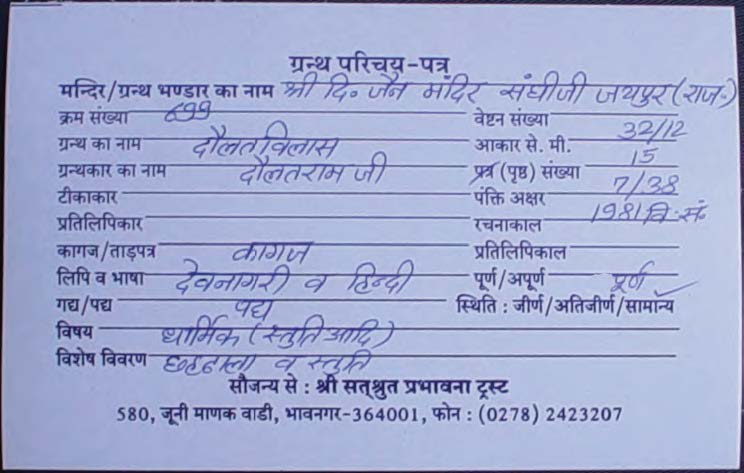 ग्रन्थ परिचय-पत्र
मन्दिर/ग्रन्थ भण्डार का नाम श्री दि. जैन मंदिर संघीजी जयपुर (राज.)
क्रम संख्या 699 वेष्टन संख्या
ग्रन्थ का नाम दौलतविलास आकार से. मी. 32/12
ग्रन्थकार का नाम दौलतराम जी प्रत्र (पृष्ठ) संख्या 15
टीकाकार पंक्ति अक्षर 7/38
प्रतिलिपिकार रचनाकाल 1981 वि.सं.
कागज/ताड़पत्र कागज प्रतिलिपिकाल
लिपि व भाषा देवनागरी व हिन्दी पूर्ण/अपूर्ण पूर्ण
गद्य/पद्य पद्य स्थिति : जीर्ण/अतिजीर्ण/सामान्य ✓
विषय धार्मिक (स्तुति आदि)
विशेष विवरण छहढाला व स्तुति
सौजन्य से : श्री सत्श्रुत प्रभावना ट्रस्ट
580, जूनी माणक वाडी, भावनगर-364001, फोन : (0278) 2423207